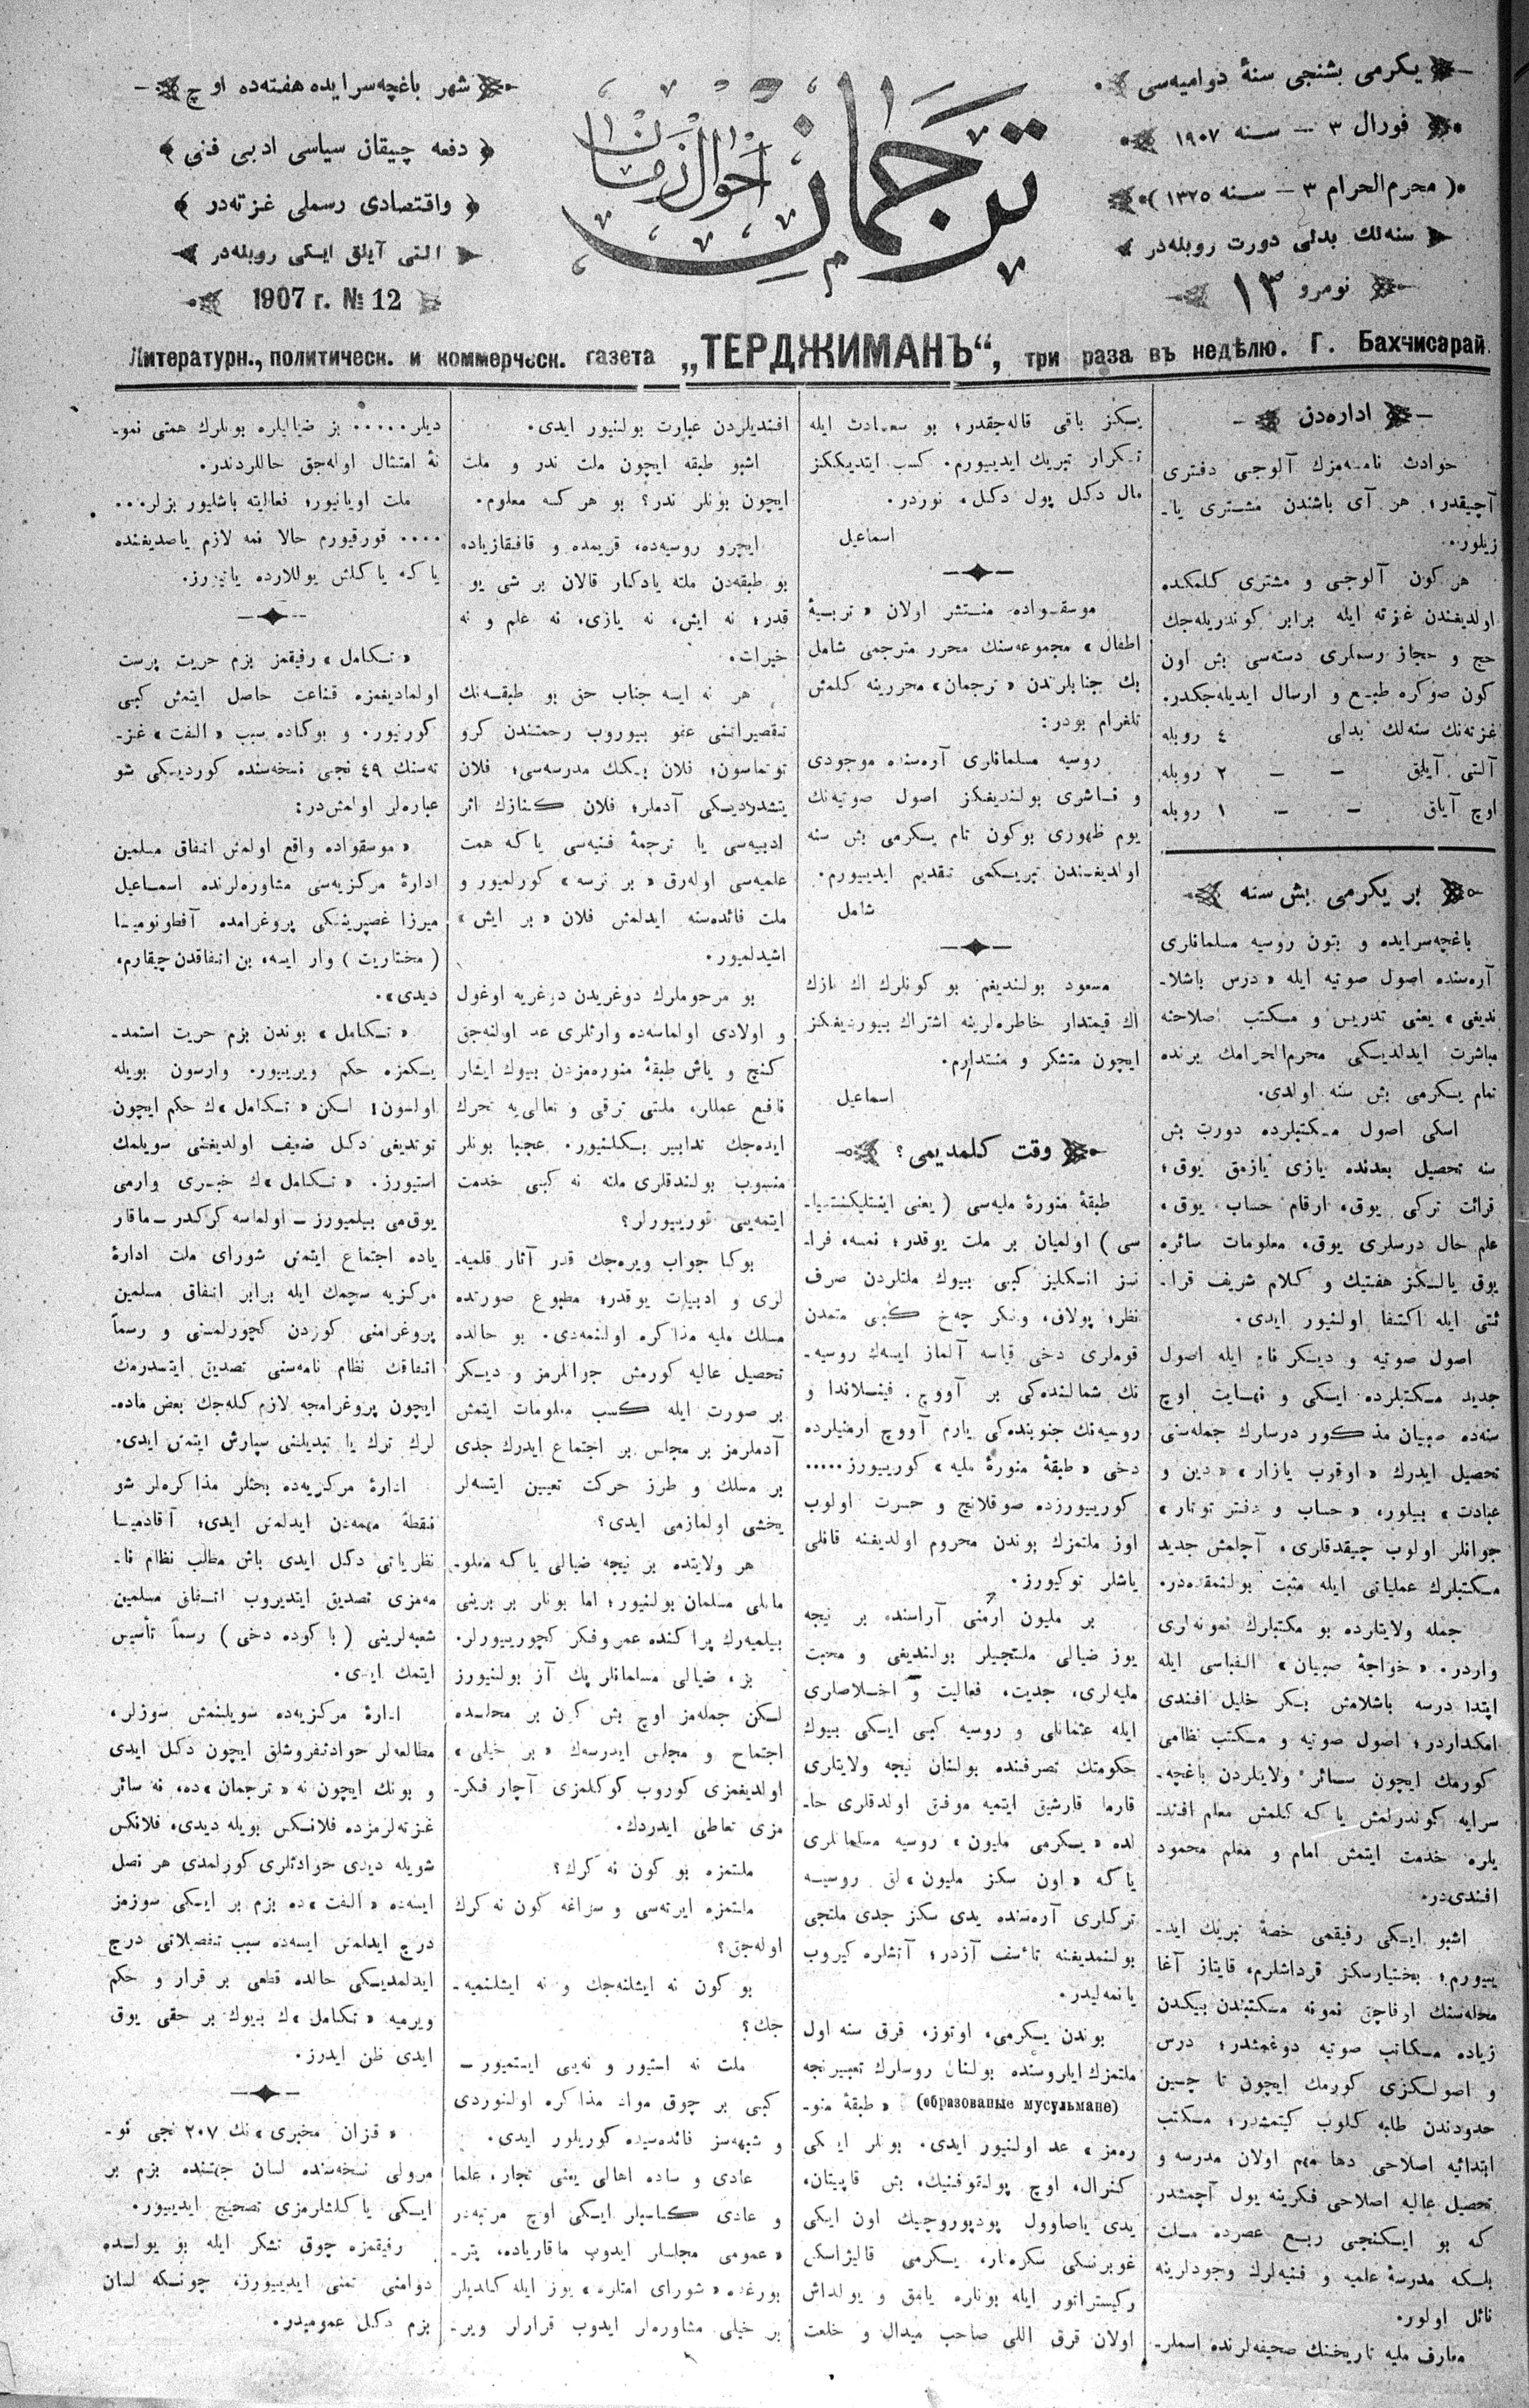 یكرمی بشنجی سنهٔ دوامیه‌سی
فورال ۳ — سنه ۱۹۰۷
( محرم‌الحرام ۳ — سنه ۱۳۲۵ )
سنه‌لك بدلی دورت روبله‌در
نومرو ۱۳
ترجمان احوال زمان
شهر باغچه‌سرایده هفته‌ده اوچ
﴿ دفعه چیقان سیاسی ادبی فنی ﴾
﴿ واقتصادی رسملی غزته‌در ﴾
التی آیلق ایكی روبله‌در
1907 г. № 12
Литературн., политическ. и коммерческ. газета „ТЕРДЖИМАНЪ“, три раза въ недѣлю. Г. Бахчисарай.
اداره‌دن
حوادث نامه‌مزك آلوجی دفتری
آچیقدر؛ هر آی باشندن مشتری یا-
زیلور.
هر كون آلوجی و مشتری كلمكده
اولدیغندن غزته ایله برابر كوندریله‌جك
حج و حجاز رسملری دسته‌سی بش اون
كون صوكره طبع و ارسال ایدیله‌جكدر.
غزته‌نك سنه‌لك بدلی ٤ روبله
آلتی آیلق — — ۲ روبله
اوچ آیلق — — ۱ روبله
بر یكرمی بش سنه
باغچه‌سرایده و بتون روسیه مسلمانلری
آره‌سنده اصول صوتیه ایله « درس باشلا-
ندیغی » یعنی تدریس و مكتب اصلاحنه
مباشرت ایدلدیكی محرم‌الحرامك برنده
تمام یكرمی بش سنه اولدی.
اسكی اصول مكتبلرده دورت بش
سنه تحصیل بعدنده یازی یازمق یوق؛
قرائت تركی یوق، ارقام حساب یوق،
علم حال درسلری یوق، معلومات سائره
یوق یالكز هفتیك و كلام شریف قرا-
ئتی ایله اكتفا اولنیور ایدی.
اصول صوتیه و دیكر نام ایله اصول
جدید مكتبلرده ایكی و نهایت اوچ
سنه‌ده صبیان مذكور درسلرك جمله‌سنی
تحصیل ایدرك « اوقوب یازار » « دین و
عبادت » بیلور، « حساب و دفتر توتار »
جوانلر اولوب چیقدقلری، آچلمش جدید
مكتبلرك عملیاتی ایله مثبت بولنمقده‌در.
جمله ولایتلرده بو مكتبلرك نمونه‌لری
واردر. « خواجهٔ صبیان » الفباسی ایله
ابتدا درسه باشلامش بكر خلیل افندی
امكداردر؛ اصول صوتیه و مكتب نظامی
كورمك ایچون سائر ولایتلردن باغچه-
سرایه كوندرلمش یا كه كلمش معلم افند-
یلره خدمت ایتمش امام و معلم محمود
افندی‌در.
اشبو ایكی رفیقمی خصهٔ تبریك اید-
ییورم؛ بختیارسكز قرداشلرم، قایتاز آغا
محله‌سنك اوفاچق نمونه مكتبندن بیكدن
زیاده مكاتب صوتیه دوغمشدر؛ درس
و اصولكزی كورمك ایچون تا چین
حدودندن طلبه كلوب كیتمشدر؛ مكتب
ابتدائیه اصلاحی دها مهم اولان مدرسه و
تحصیل عالیه اصلاحی فكرینه یول آچمشدر
كه بو ایكنجی ربع عصرده ملت
بلكه مدرسهٔ علمیه و فنیه‌لرك وجودلرینه
نائل اولور.
معارف ملیه تاریخنك صحیفه‌لرنده اسملر-
یكز باقی قاله‌جقدر؛ بو سعادت ایله
تكرار تبریك ایدییورم. كسب ایتدیككز
مال دكل پول دكل، نوردر.
اسماعیل
موسقواده منتشر اولان « تربیهٔ
اطفال » مجموعه‌سنك محرر مترجمی شامل
بك جنابلرندن « ترجمان » محررینه كلمش
تلغرام بودر:
روسیه مسلمانلری آره‌سنده موجودی
و ناشری بولندیغكز اصول صوتیه‌نك
یوم ظهوری بوكون تام یكرمی بش سنه
اولدیغندن تبریكمی تقدیم ایدییورم.
شامل
مسعود بولندیغم بو كونلرك اك نازك
اك قیمتدار خاطره‌لرینه اشتراك بیوردیغكز
ایچون متشكر و منتدارم.
اسماعیل
وقت كلمدیمی؟
طبقهٔ منورهٔ ملیه‌سی ( یعنی اینتلیكنتسیا-
سی ) اولمیان بر ملت یوقدر؛ نمسه، فرا-
نسز انكلیز كبی بیوك ملتلردن صرف
نظر؛ پولاق، ونكر چه‌خ كبی متمدن
قوملری دخی قیاسه آلماز ایسه‌ك روسیه-
نك شمالنده‌كی بر آووچ. فینلاندا و
روسیه‌نك جنوبنده‌كی یارم آووچ ارمنیلرده
دخی « طبقهٔ منورهٔ ملیه » كورییورز.....
كورییورزده صوقلانج و حسرت اولوب
اوز ملتمزك بوندن محروم اولدیغنه قانلی
یاشلر توكیورز.
بر ملیون ارمنی آراسنده بر نیچه
یوز ضیالی ملتجیلر بولندیغی و محبت
ملیه‌لری، جدیت، فعالیت و اخلاصلری
ایله عثمانلی و روسیه كبی ایكی بیوك
حكومتك تصرفنده بولنان نیچه ولایتلری
قارما قارشیق ایتمیه موفق اولدقلری حا-
لده « یكرمی ملیون » روسیه مسلمانلری
یا كه « اون سكز ملیون » لق روسیه
تركلری آره‌سنده یدی سكز جدی ملتجی
بولنمدیغنه تأسف آزدر؛ آتشلره كیروب
یانمه‌لیدر.
بوندن یكرمی، اوتوز، قرق سنه اول
ملتمزك ایلروسنده بولنان روسلرك تعبیرنجه
(образованые мусульмане) « طبقهٔ منو-
ره‌مز » عد اولنیور ایدی. بونلر ایكی
كنرال، اوچ پولقوفنیك، بش قاپیتان،
یدی یاصاوول پودپوروچیك اون ایكی
غوبرنسكی سكره‌تار، یكرمی قاللیژاسكی
ركیستراتور ایله بونلره یامق و یولداش
اولان قرق اللی صاحب میدال و خلعت
افندیلردن عبارت بولنیور ایدی.
اشبو طبقه ایچون ملت ندر و ملت
ایچون بونلر ندر؟ بو هر كسه معلوم.
ایچرو روسیه‌ده، قریمده و قافقازیاده
بو طبقه‌دن ملته یادكار قالان بر شی یو
قدر؛ نه ایش، نه یازی، نه علم و نه
خیرات.
هر نه ایسه جناب حق بو طبقه‌نك
تقصیراتنی عفو بیوروب رحمتندن كرو
توتماسون؛ فلان بكك مدرسه‌سی؛ فلان
یتشدردیكی آدملر؛ فلان كنازك اثر
ادبیه‌سی یا ترجمهٔ فنیه‌سی یا كه همت
علمیه‌سی اوله‌رق « بر نرسه » كورلمیور و
ملت فائده‌سنه ایدلمش فلان « بر ایش »
اشیدلمیور.
بو مرحوملرك دوغریدن دوغریه اوغول
و اولادی اولماسه‌ده وارثلری عد اولنه‌جق
كنج و یاش طبقهٔ منوره‌مزدن بیوك ایشلر
نافع عمللر، ملتی ترقی و تعالی‌یه تحرك
ایده‌جك تدابیر بكلنیور. عجبا بونلر
منسوب بولندقلری ملته نه كبی خدمت
ایتمه‌یی قورییورلر؟
بوكا جواب ویره‌جك قدر آثار قلمیه-
لری و ادبیات یوقدر؛ مطبوع صورتده
مسلك ملیه مذاكره اولنمه‌دی. بو حالده
تحصیل عالیه كورمش جوانلرمز و دیكر
بر صورت ایله كسب معلومات ایتمش
آدملرمز بر مجلس بر اجتماع ایدرك جدی
بر مسلك و طرز حركت تعیین ایتسه‌لر
یخشی اولمازمی ایدی؟
هر ولایتده بر نیچه ضیالی یا كه معلو-
ماتلی مسلمان بولنیور؛ اما بونلر بر برینی
بیلمیه‌رك پراكنده عمر وفكر كچورییورلر.
بزه ضیالی مسلمانلر پك آز بولنیورز
لكن جمله‌مز اوچ بش كون بر محلده
اجتماع و مجلس ایدرسه‌ك « بر خیلی »
اولدیغمزی كوروب كوكلمزی آچار فكر-
مزی تعاطی ایدردك.
ملتمزه بو كون نه كرك؟
ملتمزه ایرته‌سی و سوراغه كون نه كرك
اوله‌جق؟
بو كون نه ایشلنه‌جك و نه ایشلنمیه-
جك؟
ملت نه استیور و نه‌یی ایستمیور —
كبی بر چوق مواد مذاكره اولنوردی
و شبهه‌سز فائده‌سیده كوریلور ایدی.
عادی و ساده اهالی یعنی تجار، علما
و عادی كاسبلر ایكی اوچ مرتبه‌در
« عمومی مجلسلر ایدوب ماقاریاده، پتر-
بورغده « شورای امتلره » یوز ایله كلدیلر
بر خیلی مشاوره‌لر ایدوب قرارلر ویر-
دیلر..... بز ضیالیلره بونلرك همتی نمو-
نهٔ امتثال اوله‌جق حاللردندر.
ملت اویانیور؛ فعالیته باشلیور بزلر...
.... قورقیورم حالا نمه لازم یاصدیغنده
یا كه یاكلش یوللارده یاتیرز.
« تكامل » رفیقمز بزم حریت پرست
اولمادیغمزه قناعت حاصل ایتمش كبی
كورنیور. و بوكاده سبب « الفت » غز-
ته‌سنك ٤٩ نجی نسخه‌سنده كوردیكی شو
عباره‌لر اولمش‌در:
« موسقواده واقع اولمش اتفاق مسلمین
ادارهٔ مركزیه‌سی مشاوره‌لرنده اسماعیل
میرزا غصپرینسكی پروغرامده آفطونومیا
( مختاریت ) وار ایسه، بن اتفاقدن چیقارم،
دیدی».
« تكامل » بوندن بزم حریت استمد-
یكمزه حكم ویرییور. وارسون بویله
اولسون! لكن « تكامل »ك حكم ایچون
توتدیغی دكل ضعیف اولدیغنی سویلمك
استیورز. « تكامل »ك خبری وارمی
یوق‌می بیلمیورز — اولماسه كركدر — ماقار
یاده اجتماع ایتمش شورای ملت ادارهٔ
مركزیه سچمك ایله برابر اتفاق مسلمین
پروغرامنی كوزدن كچورلمسنی و رسماً
اتفاقك نظام نامه‌سنی تصدیق ایتسدرمك
ایچون پروغرامجه لازم كله‌جك بعض ماده-
لرك ترك یا تبدیلنی سپارش ایتمش ایدی.
ادارهٔ مركزیه‌ده بحثلر مذاكره‌لر شو
نقطهٔ مهمه‌دن ایدلمش ایدی؛ آقادمیا
نظریاتی دكل ایدی باش مطلب نظام نا-
مه‌مزی تصدیق ایتدیروب اتفاق مسلمین
شعبه‌لرینی ( باكوده دخی ) رسماً تأسیس
ایتمك ایدی.
ادارهٔ مركزیه‌ده سویلنمش سوزلر،
مطالعه‌لر حوادثفروشلق ایچون دكل ایدی
و بونك ایچون نه « ترجمان »ده، نه سائر
غزته‌لرمزده فلانكس بویله دیدی، فلانكس
شویله دیدی حوادثلری كورلمدی هر نصل
ایسه‌ده « الفت »ده بزم بر ایكی سوزمز
درج ایدلمش ایسه‌ده سبب تفصیلاتی درج
ایدلمدیكی حالده قطعی بر قرار و حكم
ویرمیه « تكامل »ك بیوك بر حقی یوق
ایدی ظن ایدرز.
« قزان مخبری »نك ۲۰۷ نجی نو-
مرولی نسخه‌سنده لسان جهتنده بزم بر
ایكی یاكلشلرمزی تصحیح ایدییور.
رفیقمزه چوق تشكر ایله بو یولده
دوامنی تمنی ایدییورز، چونكه لسان
بزم دكل عمومیدر.